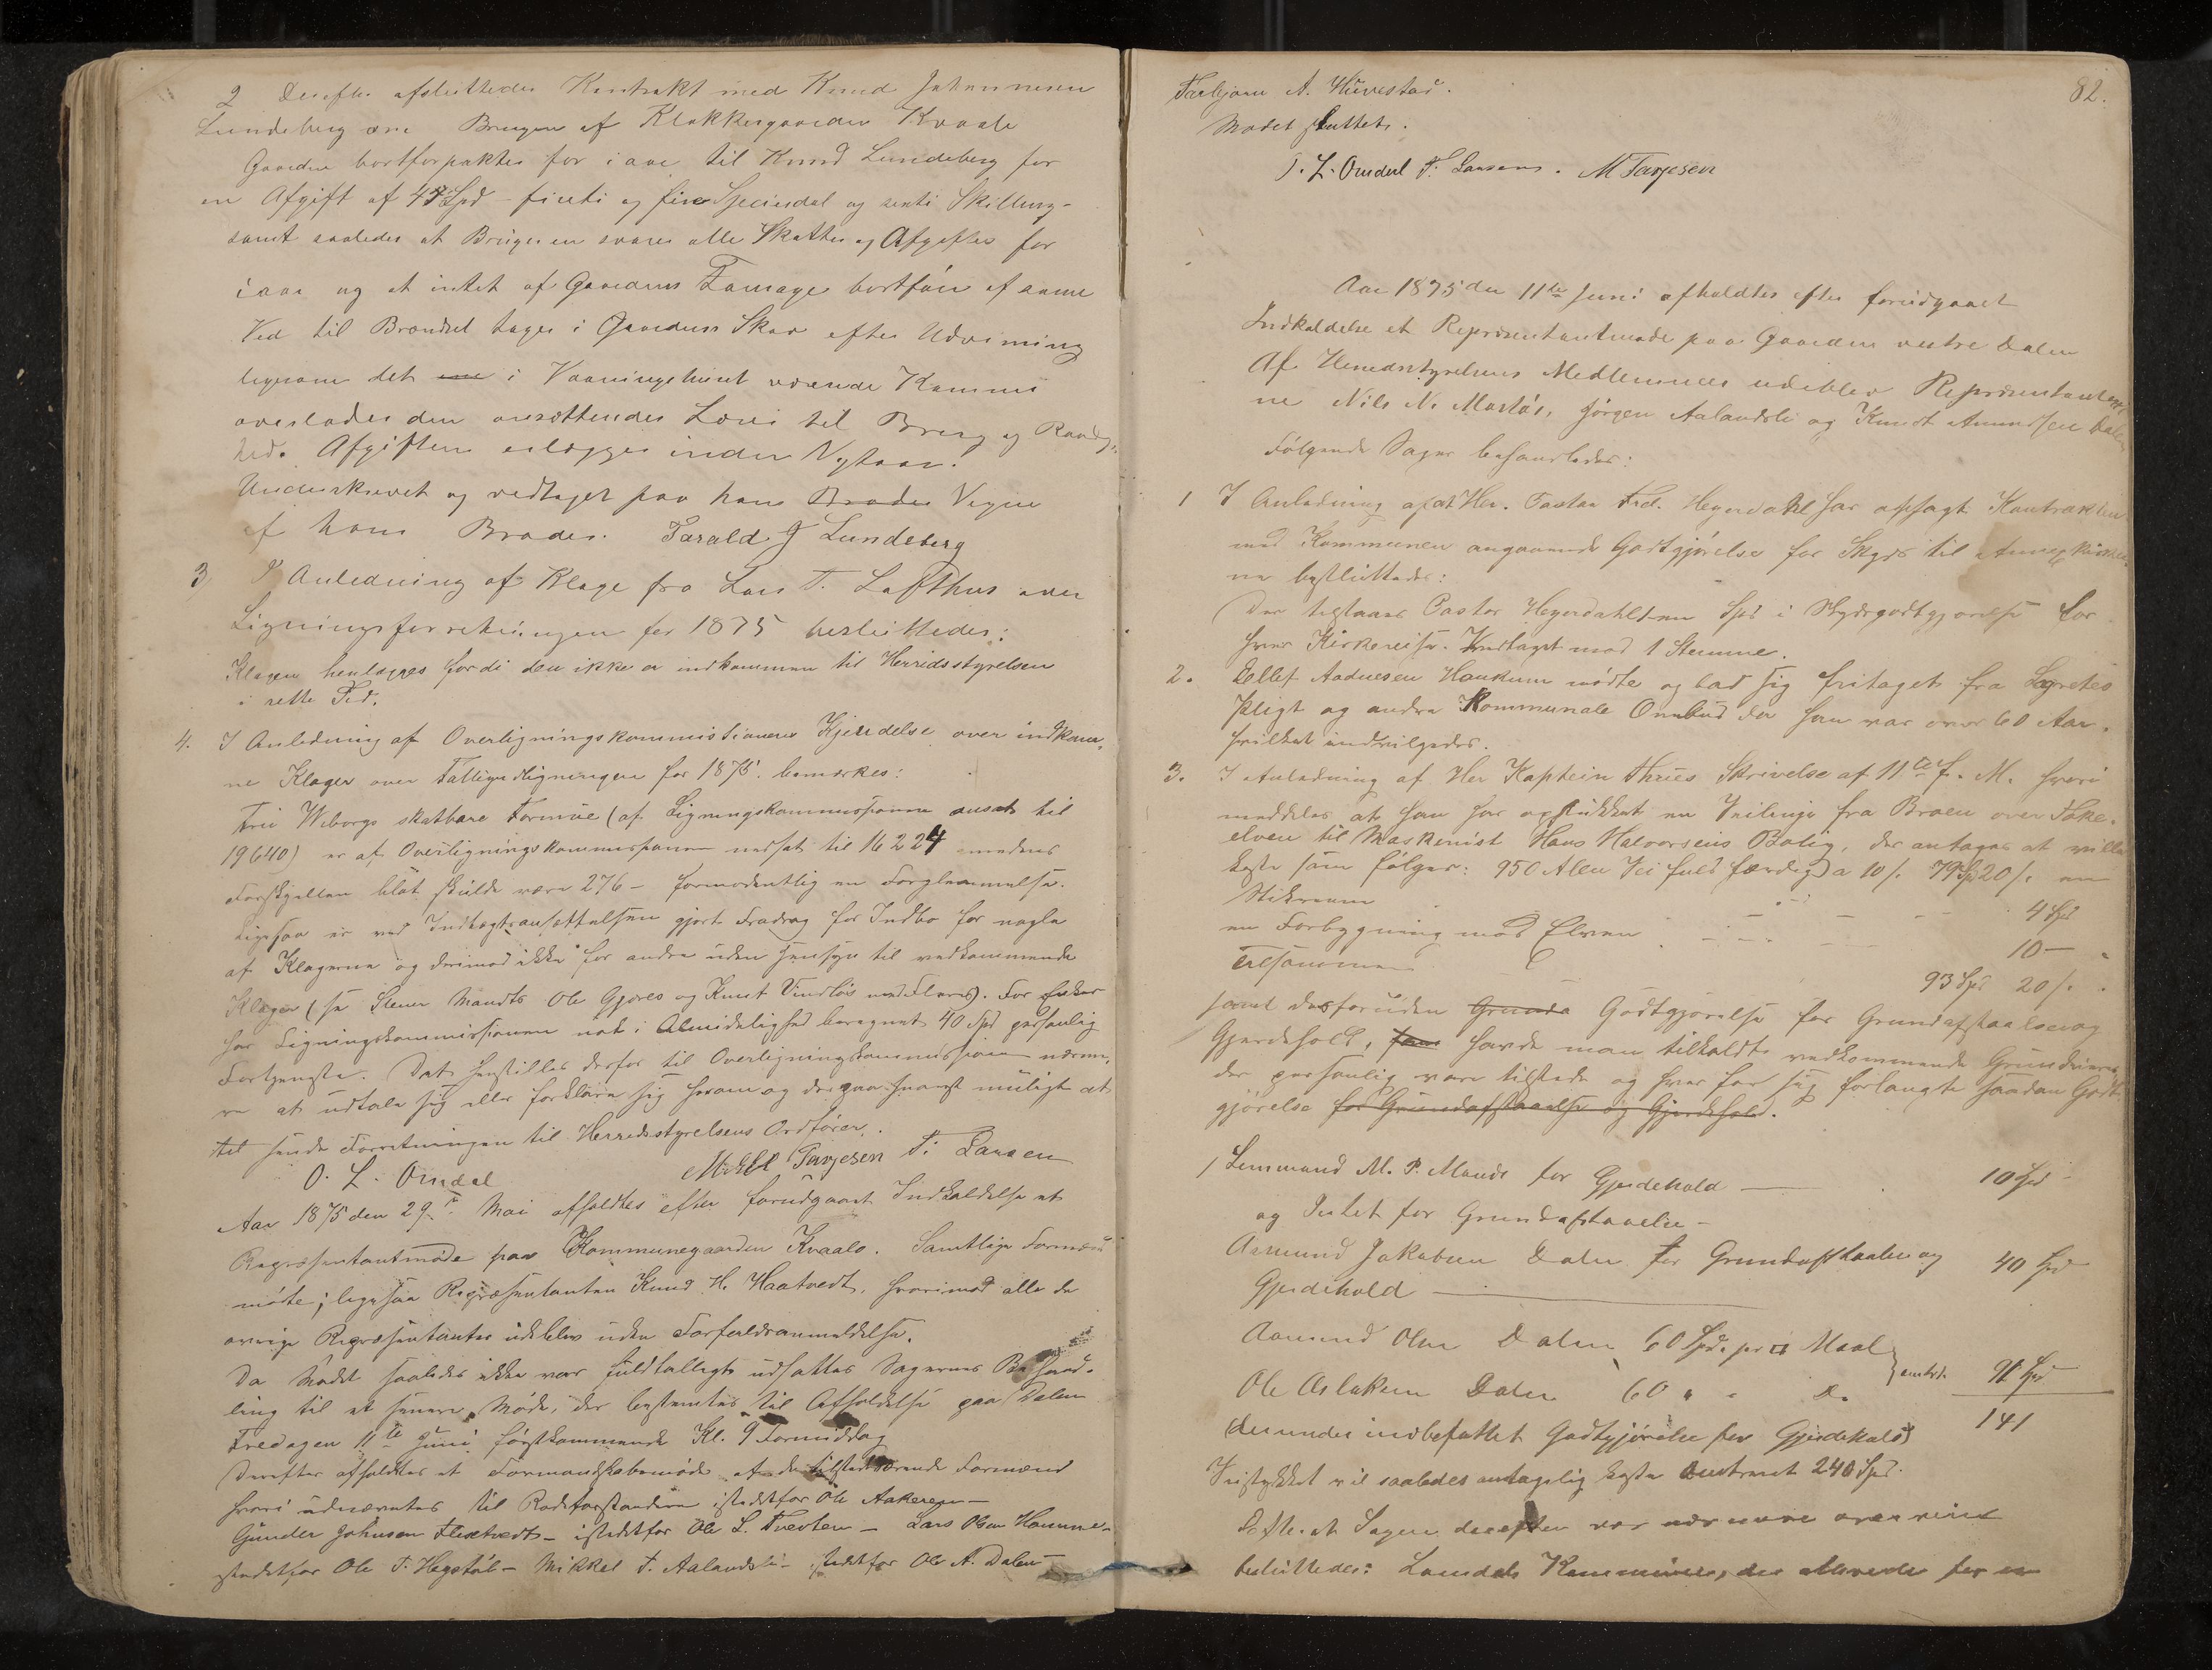 2 Derefter afsluttedes Kontrakt med Knud Johannesen
Lundeberg om Brugen af Klokkergaarden Kvaale
Gaarden bortforpaktes for i aar til Knud Lundeberg for
en Afgift af Spd firti og fire Speciedal og Skilling
samt saaledes at Brugeren svarer alle Skatter og Afgifter for
iaar og at intet af Gaardens Fourage bortføres af samme
Ved til Brændsel tages i Gaardens Skov efter Udvisning
ligesom det i Vaaningshuset værende Kammer
overlades den ansættendes Lærer til Brug og Raadig-
hed. Afgiften erlægges inden Nytaar.
Underskrevet og vedtaget paa hans Broders Vegne
af hans Broder. Tarald J Lundeberg
3 I Anledning af Klage fra Lars T. Lofthus over
Ligningsforretningen for 1875 besluttedes:
Klagen henlægges fordi den ikke er indkommen til Herredsstyrelsen
i rette Tid.
4. I Anledning af Overligningskommissionens Kjendelse over indkom-
ne Klager over Fattigudligningen for 1875 bemærkes:
Fru Wiborgs skatbare Formue (af Ligningskommissionen ansat til
19640) er af Overligningskommissionen nedsat til 16224 medens
Forskjellen blot skulde være 276 – formodentlig en Forglemmelse.
Ligesaa er ved Indtægtsansættelsen gjort Fradrag for Indbo for nogle
af Klagerne og derimod ikke for andre uden Hensyn til vedkommende
Klager (se Stener Mandts Ole Gjøres og Knut Vindløs med Flere). For Enker
har Ligningskommissionen nok i Almindelighed beregnet 40 Spd personlig
Fortjeneste. Det henstilles derfor til Overligningskommissionen nærme-
re at udtale sig eller forklare sig herom og derpaa snarest muligt at
til sende Forretningen til Herredsstyrelsens Ordfører.
O. L. Omdal Mikkel Tarjesen T. Larsen
Aar 1875 den 29de Mai afholdtes efter forudgaaet Indkaldelse et
Repræsentantmøde paa Kommunegaarden Kvaale. Samtlige Formænd
mødte; ligesaa Repræsentanten Knud H. Haatvedt, hvorimod alle de
øvrige Repræsentanter udeblev uden Forfaldsanmeldelse.
Da Mødet saaledes ikke var fuldtalligt udsattes Sagernes Behand-
ling til et senere Møde, der bestemtes til Afholdelse paa Dalen
Fredagen 11te Juni førstkommende Kl. 9 Formiddag
Derefter afholdtes et Formandskabsmøde af de tilstedeværende Formænd
hvori udnævntes til Rodeforstandere istedetfor Ole Aakeren –
Gunder Johnsen Flextvedt – istedetfor Ole L. Tveten – Lars Olsen Homme –
istedetfor Ole T. Hegstøl – Mikkel T. Aalandsli – istedetfor Ole A. Dalen –
82.
Torbjørn A. Huvestad.
Mødet sluttet.
O. L. Omdal T. Larsen. M Tarjesen
Aar 1875 den 11te Juni afholdtes efter forudgaaet
Indkaldelse et Repræsentantmøde paa Gaarden vestre Dalen
Af Herredsstyrelsens Medlemmer udeblev Repræsentanter-
ne Nils N. Mastøs, Jørgen Aalandsli og Knut Amundsen Dalen
Følgende Sager behandledes:
1 I Anledning af at Her. Pastor Frd. Heyerdahl har opsagt Kontrakten
med Kommunen angaaende Godtgjørelse for Skyds til Annexkirker-
ne besluttedes:
Der tilstaaes Pastor Heyerdahl en Spd i Skydsgodtgjørelse for
hver Kirkereise. Vedtaget mod 1 Stemme.
2. Kollef Aadnesen Haukum mødte og bad sig fritaget fra Lagrettes
Pligt og andre Kommunale Ombud da han var over 60 Aar.
hvilket indvilgedes.
3. I Anledning af Her Kaptein Thues Skrivelse af 11te f. M. hvori
meddeles at han har opstukket en Veilinje fra Broen over Toke-
elven til Maskinist Hans Halvorsens Bolig, der antages at ville
koste som følger: 950 Alen Vei fuld færdig a 10 s. 79 Spd 20 s. en
Stikrende 4 Spd
en Forbygning mod Elven 10 –
Tilsammen 93 Spd 20 s.
samt desforuden Grunda Godtgjørelse for Grundafstaaelse og
Gjerdehold, havde man tilkaldt vedkommende Grundeiere,
der personlig vare tilstede og hver for sig forlangte saadan Godt-
gjørelse for Grundafstaaelse og Gjerdehold.
1 Lensmand M. P. Mandt for Gjerdehold – 10 Spd
og Intet for Grundafstaaelse –
Aamund Jakobsen Dalen for Grundafstaaelse og 40 Spd
Gjerdehold
Aamund Olsen Dalen 60 Spd. pr □ Maal
Ole Aslaksen Dalen 60 " " Do omtrt. 91 Spd
(derunder indbefattet Godtgjørelse for Gjerdehold) 141
Veistykket vil saaledes antagelig koste omtrent 240 Spd.
Efter at Sagen derefter var nærmere overveiet
besluttedes: Laurdals Kommune, der allerede for en